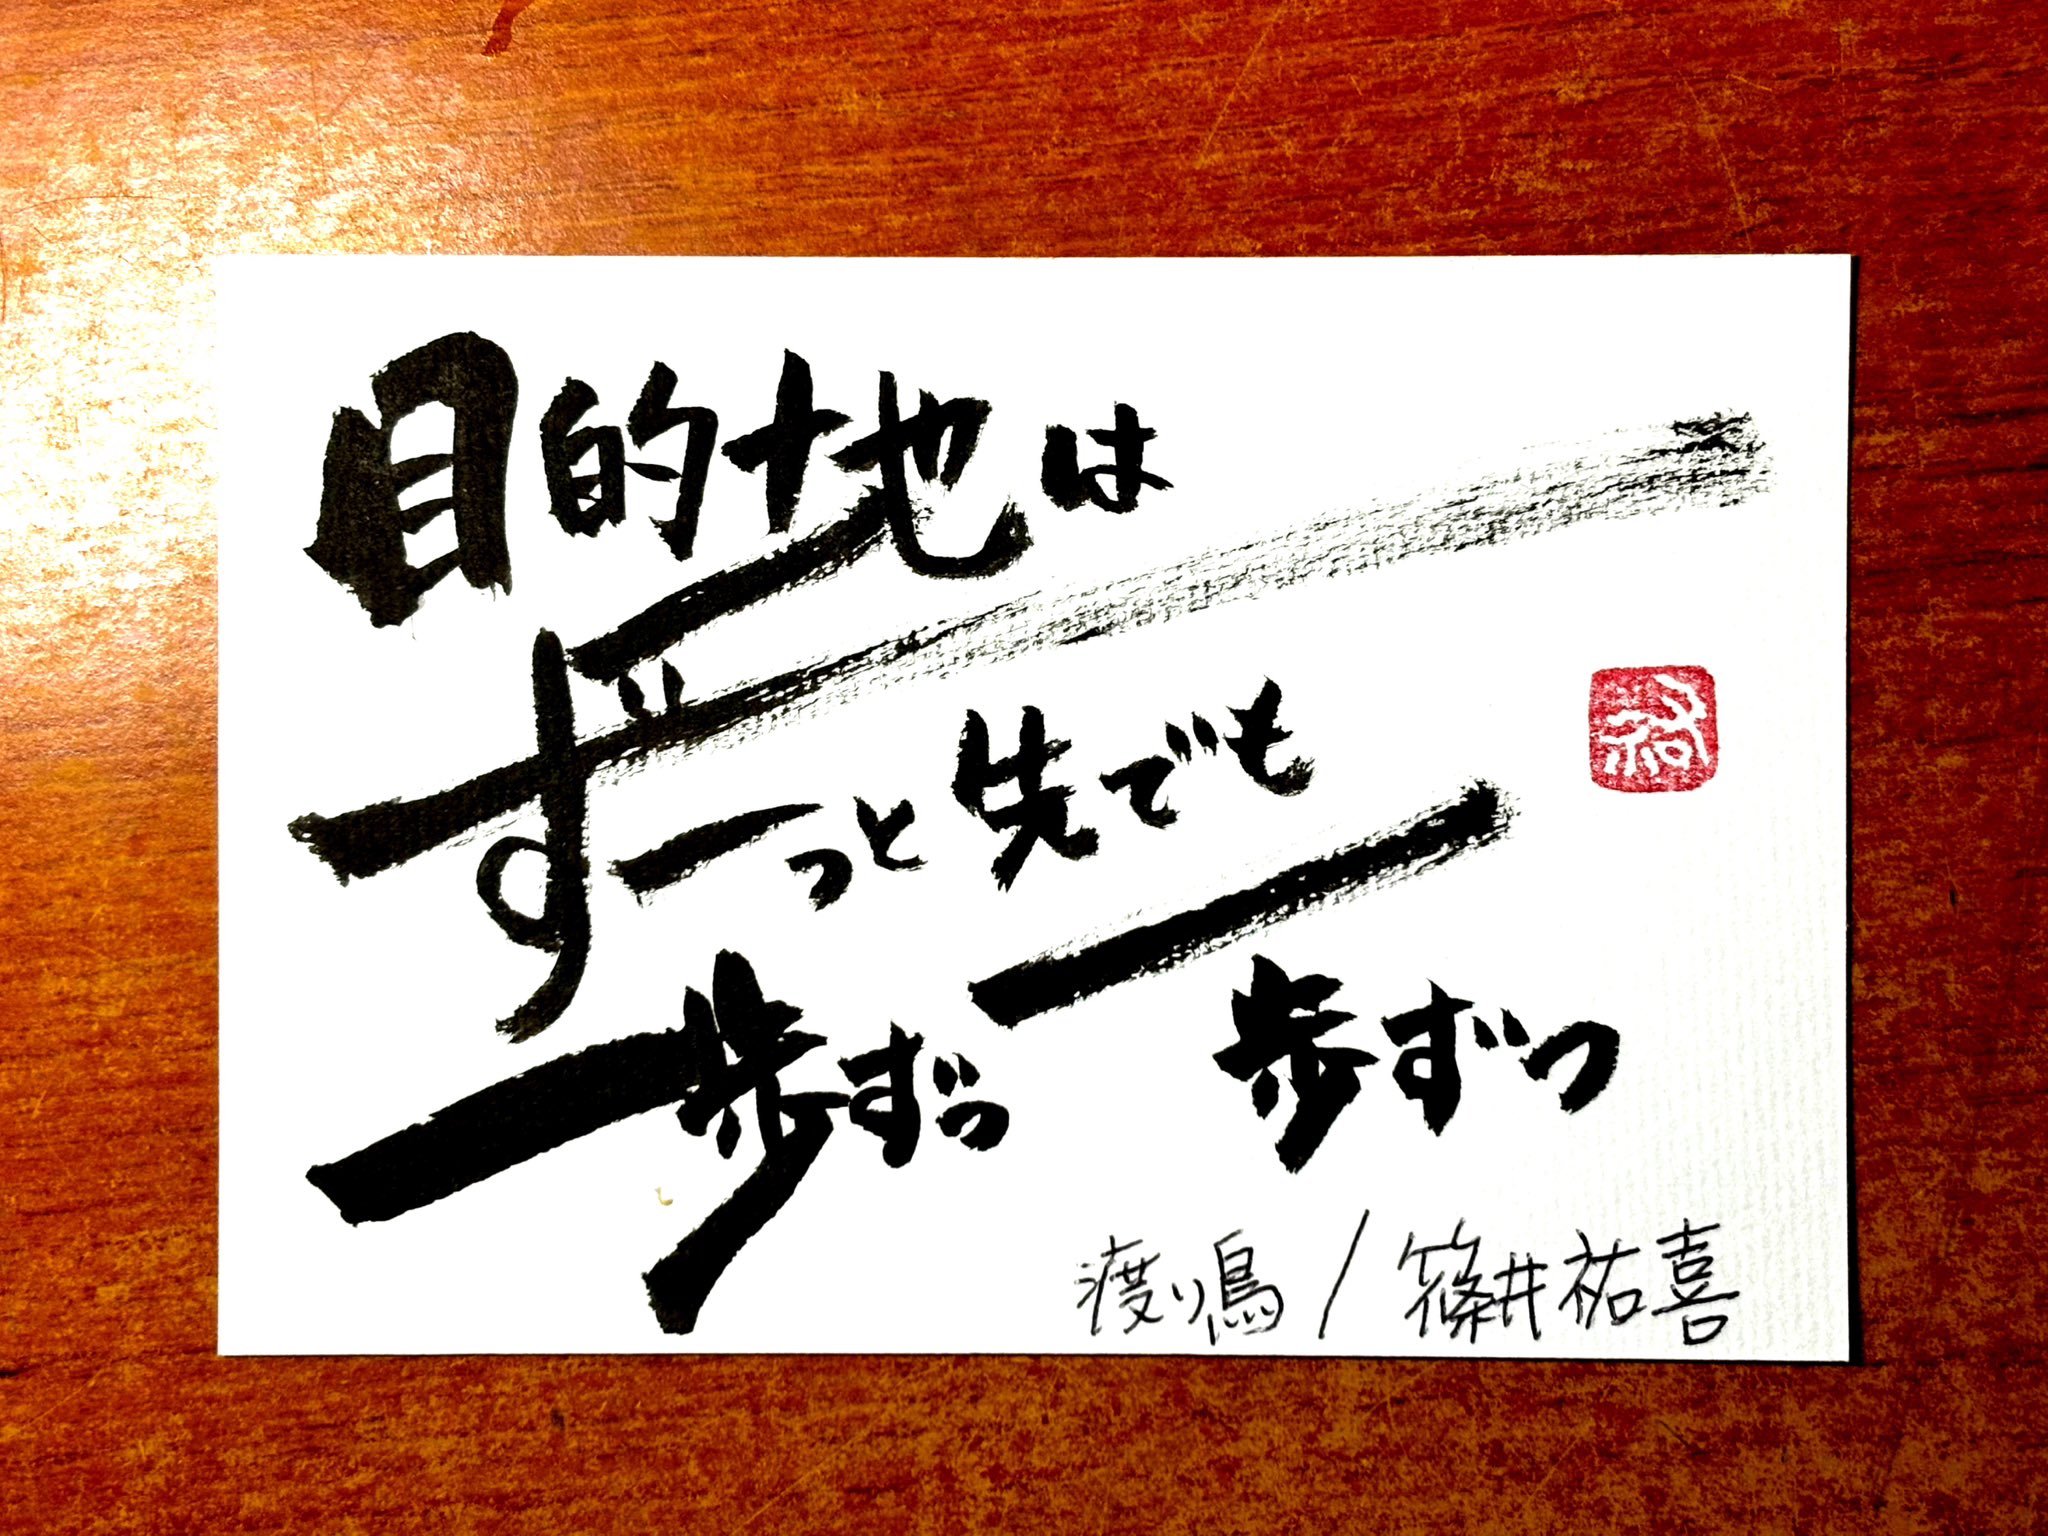 目的地は
ずーっと先でも
一歩ずつ 一歩ずつ
渡り鳥/篠井祐喜